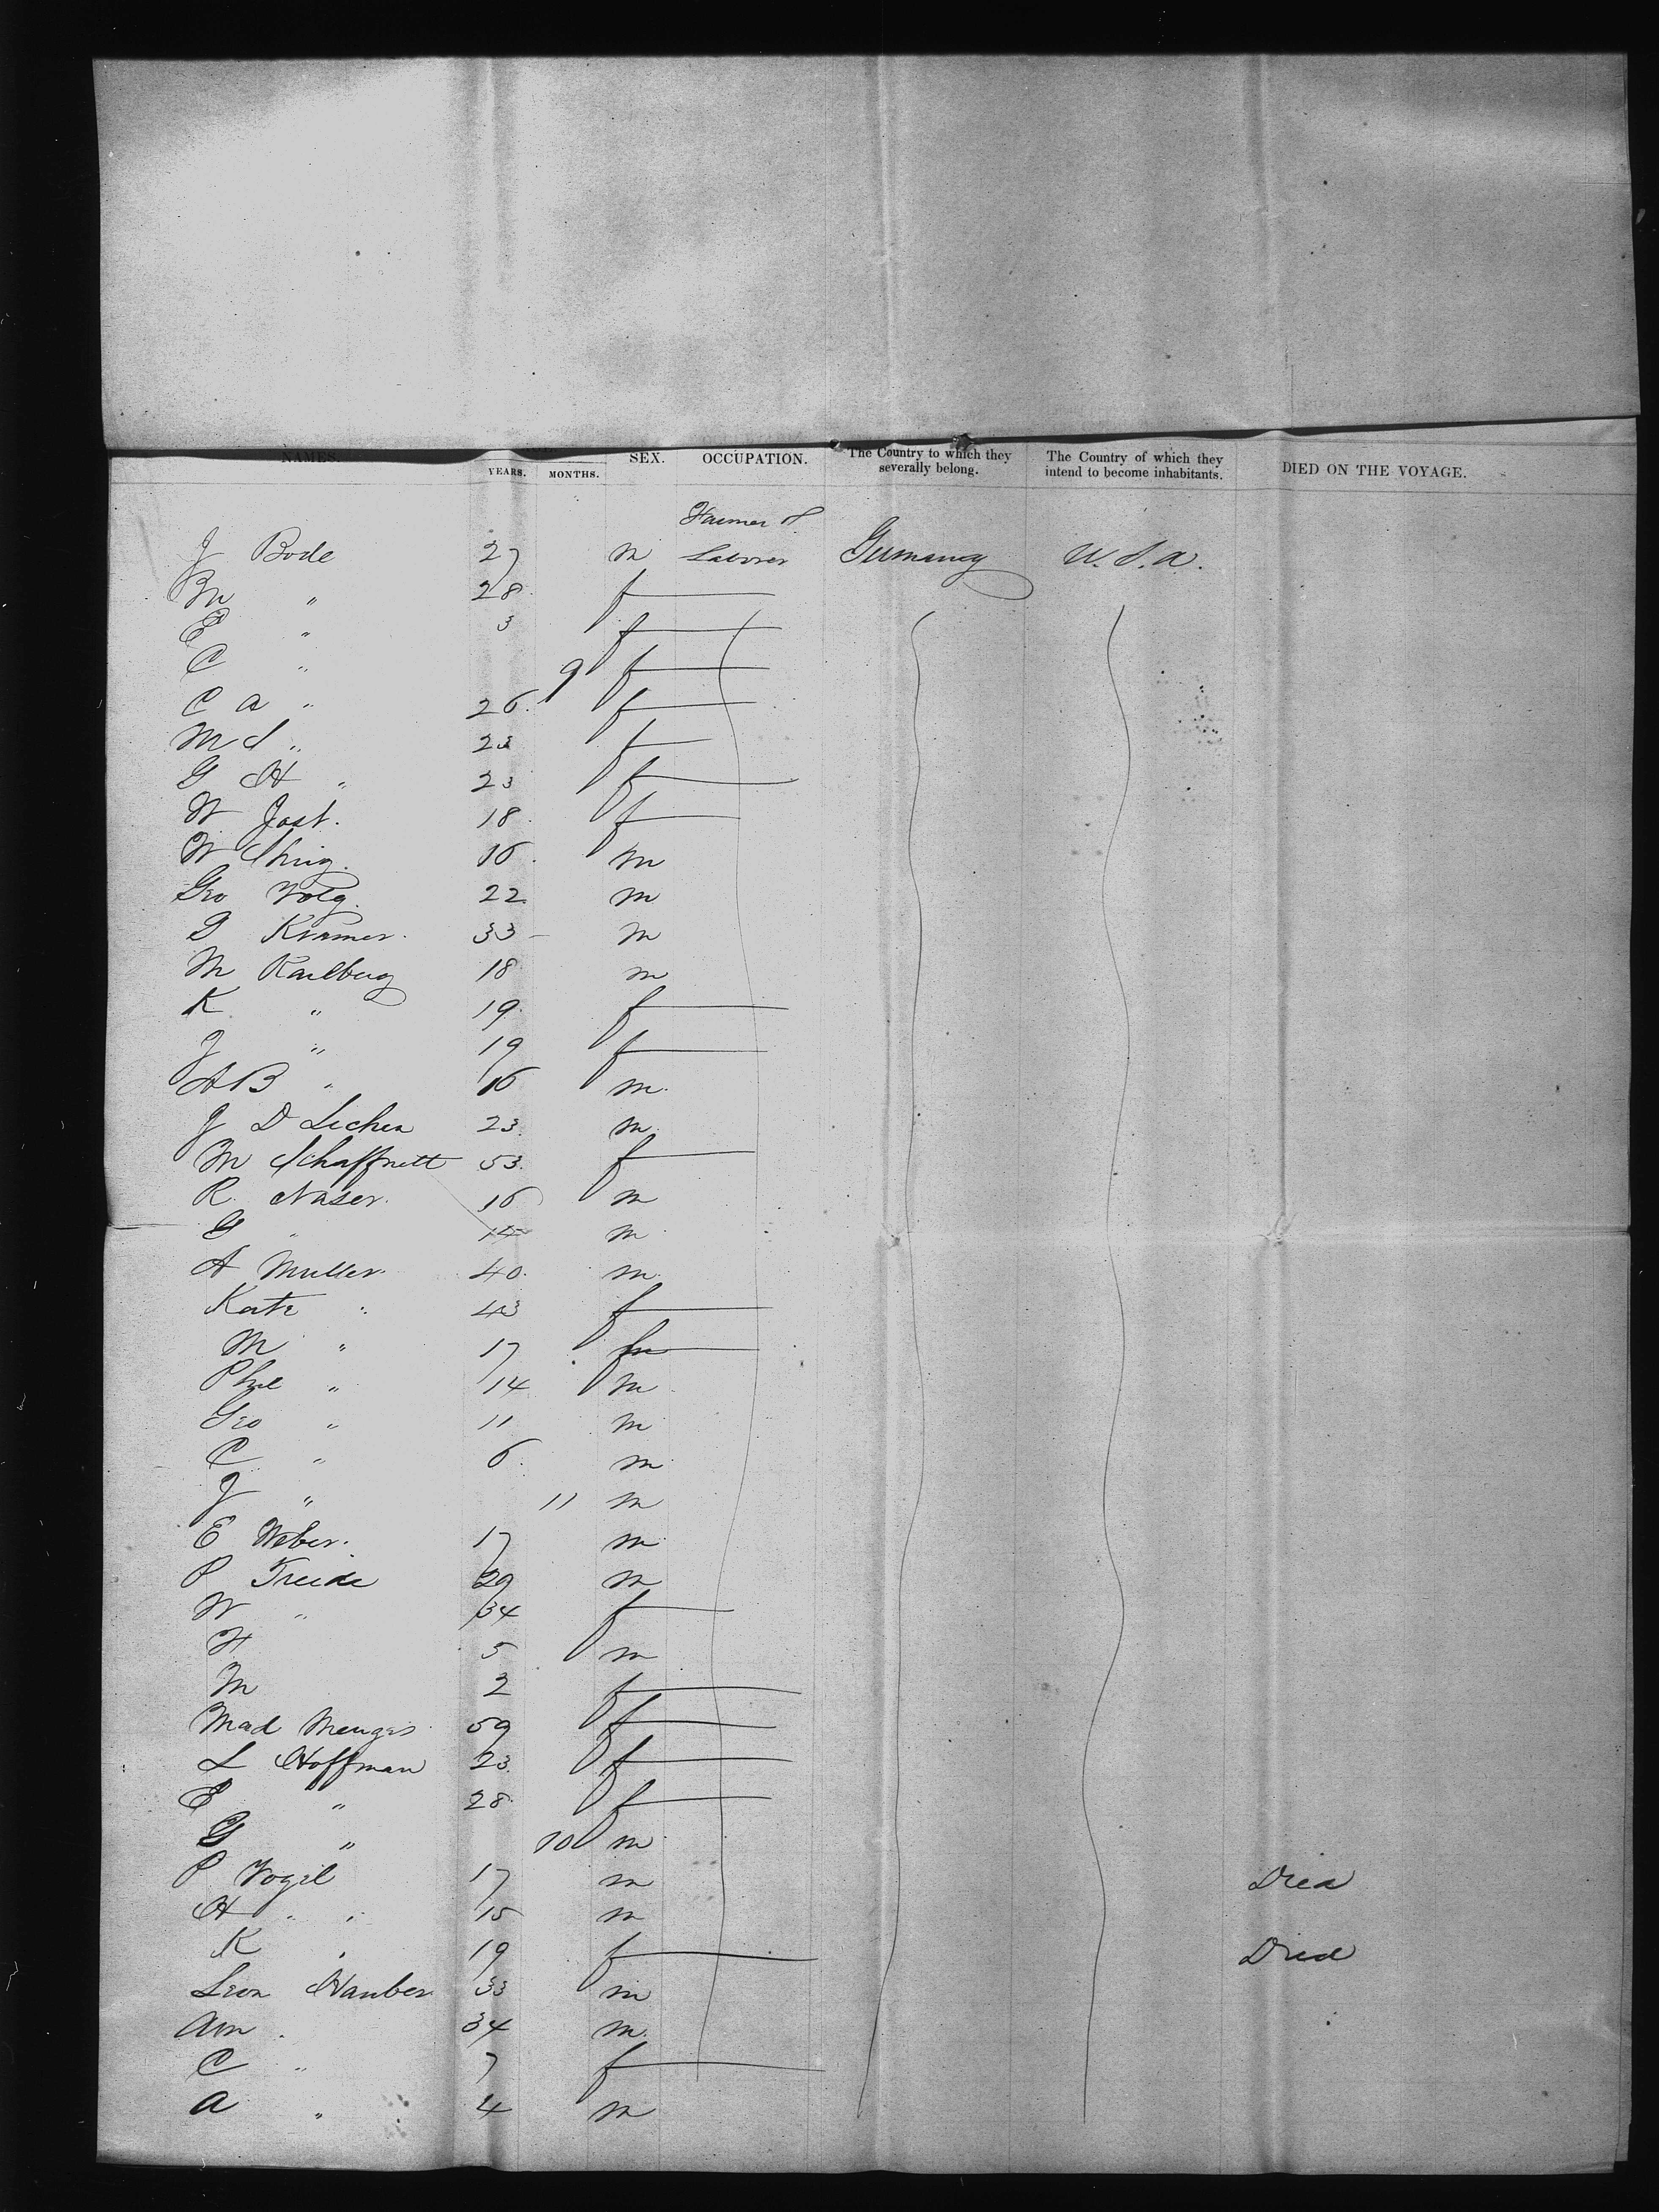 NAMES. YEARS. MONTHS. SEX. OCCUPATION. The Country to which they severally belong. The Country of which they intend to become inhabitants. DIED ON THE VOYAGE.
Farmer &
J Bode 27 m Laborer Germany U.S.A.
M " 28 f
E " 3 f
C " 9 f
C A " 26 f
M S " 23 f
G H " 23 f
W Jost. 18 f
W 16 m
Geo Volg. 22 m
D Kramer. 33 m
M Karlberg 18 m
K " 19 f
J " 19 f
A B " 16 m
J D Lechen 23 m
M Schaffnett 53 f
R. Naser 16 m
G " 14 m
A Muller 40 m
Kate " 43 f
M " 17
Phil " 14 m
Geo " 11 m
C " 6 m
J " 11 m
E Weber. 17 m
P 29 m
W " 34 f
H 5 m
M 2 f
Mad Menges 59 f
L Hoffman 23 f
E " 28 f
G " 10 m
P Vogel 17 m Died
H " " 15 m
K " 19 f Died
Leon Hauber 33 m
Am " 34 m
C " 7 f
A " 4 m